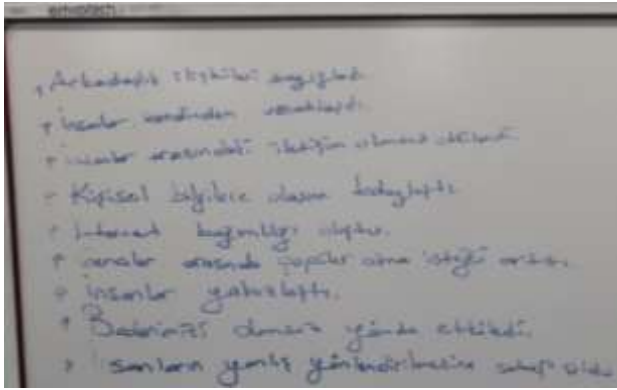 Arkadaşlık ilişkileri
insanlar kendinden uzaklaştı.
insanlar arasındaki iletişim olumsuz etkilendi
Kişisel bilgilere ulaşım kolaylaştı
internet bağımlılığı oluştu.
arasında popüler olma isteği arttı.
insanlar yalnızlaştı.
olumsuz yönde etkiledi.
insanların yanlış yönlendirilmesine sebep oldu